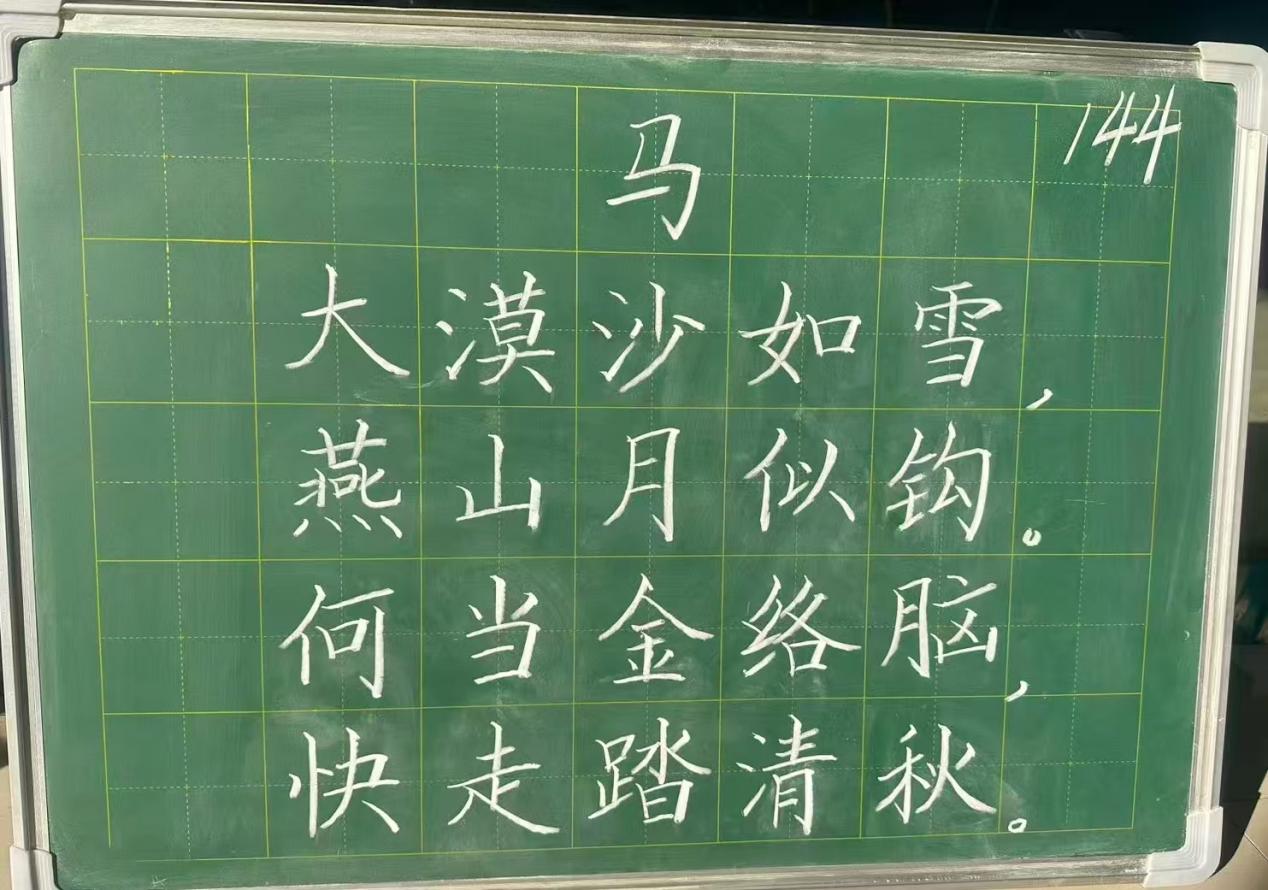 144
马
大漠沙如雪，
燕山月似钩。
何当金络脑，
快走踏清秋。